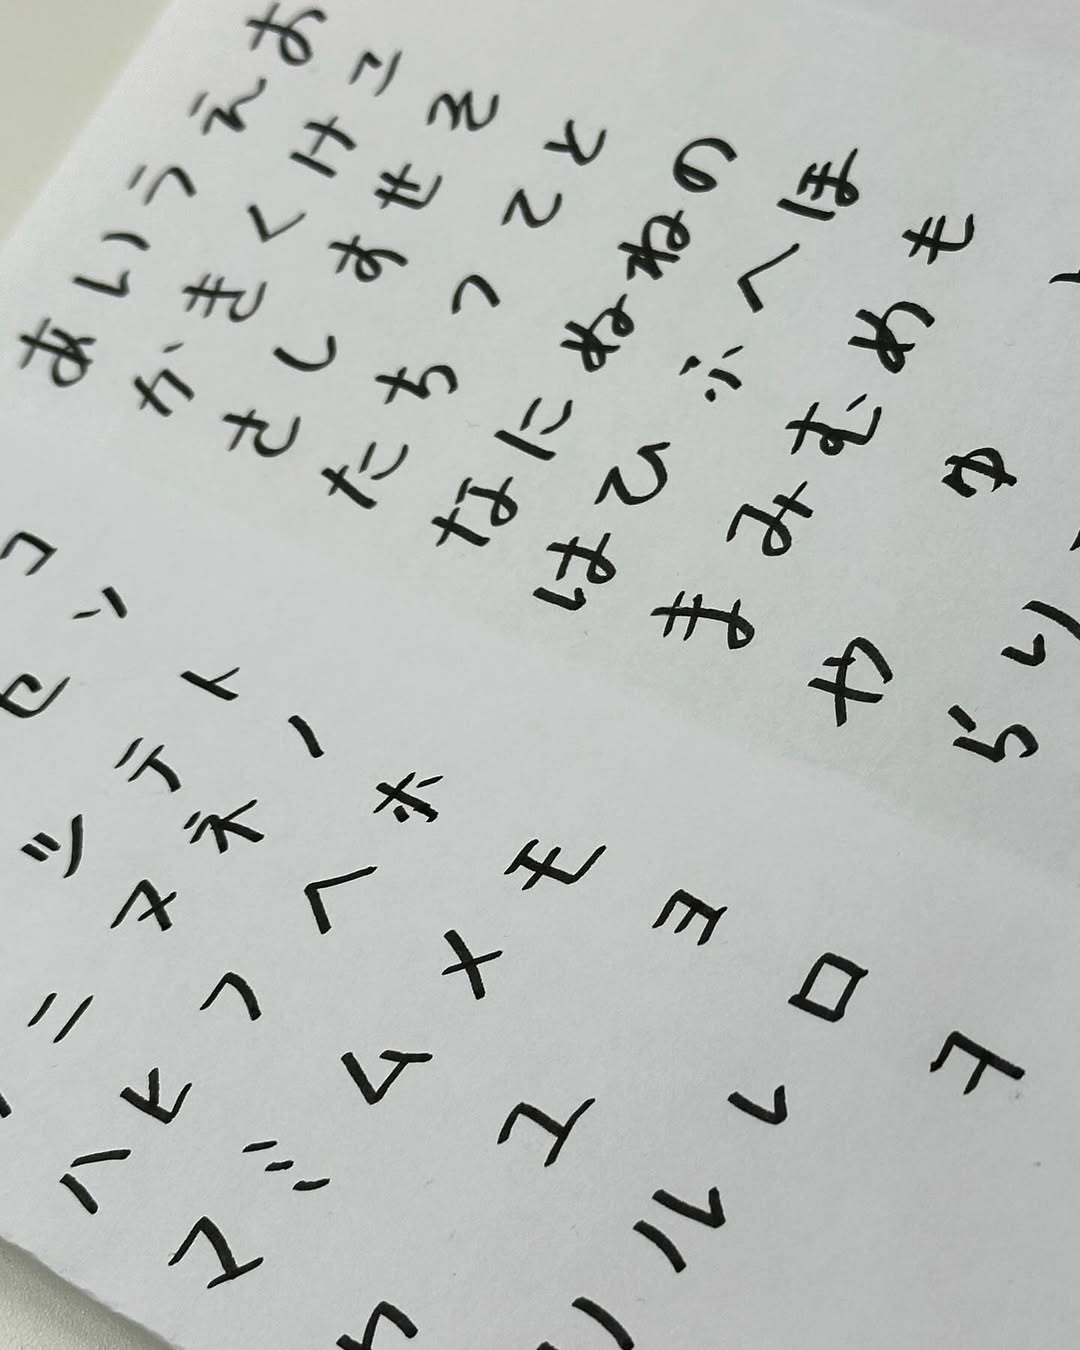 あいうえお
かきくけこ
さしすせそ
たちつてと
なにぬねの
はひふへほ
まみむめも
やゆ
らり
コ
セソ
ツテト
ニヌネノ
ハヒフヘホ
マミムメモ
ヤユヨ
リルレロ
ヲ